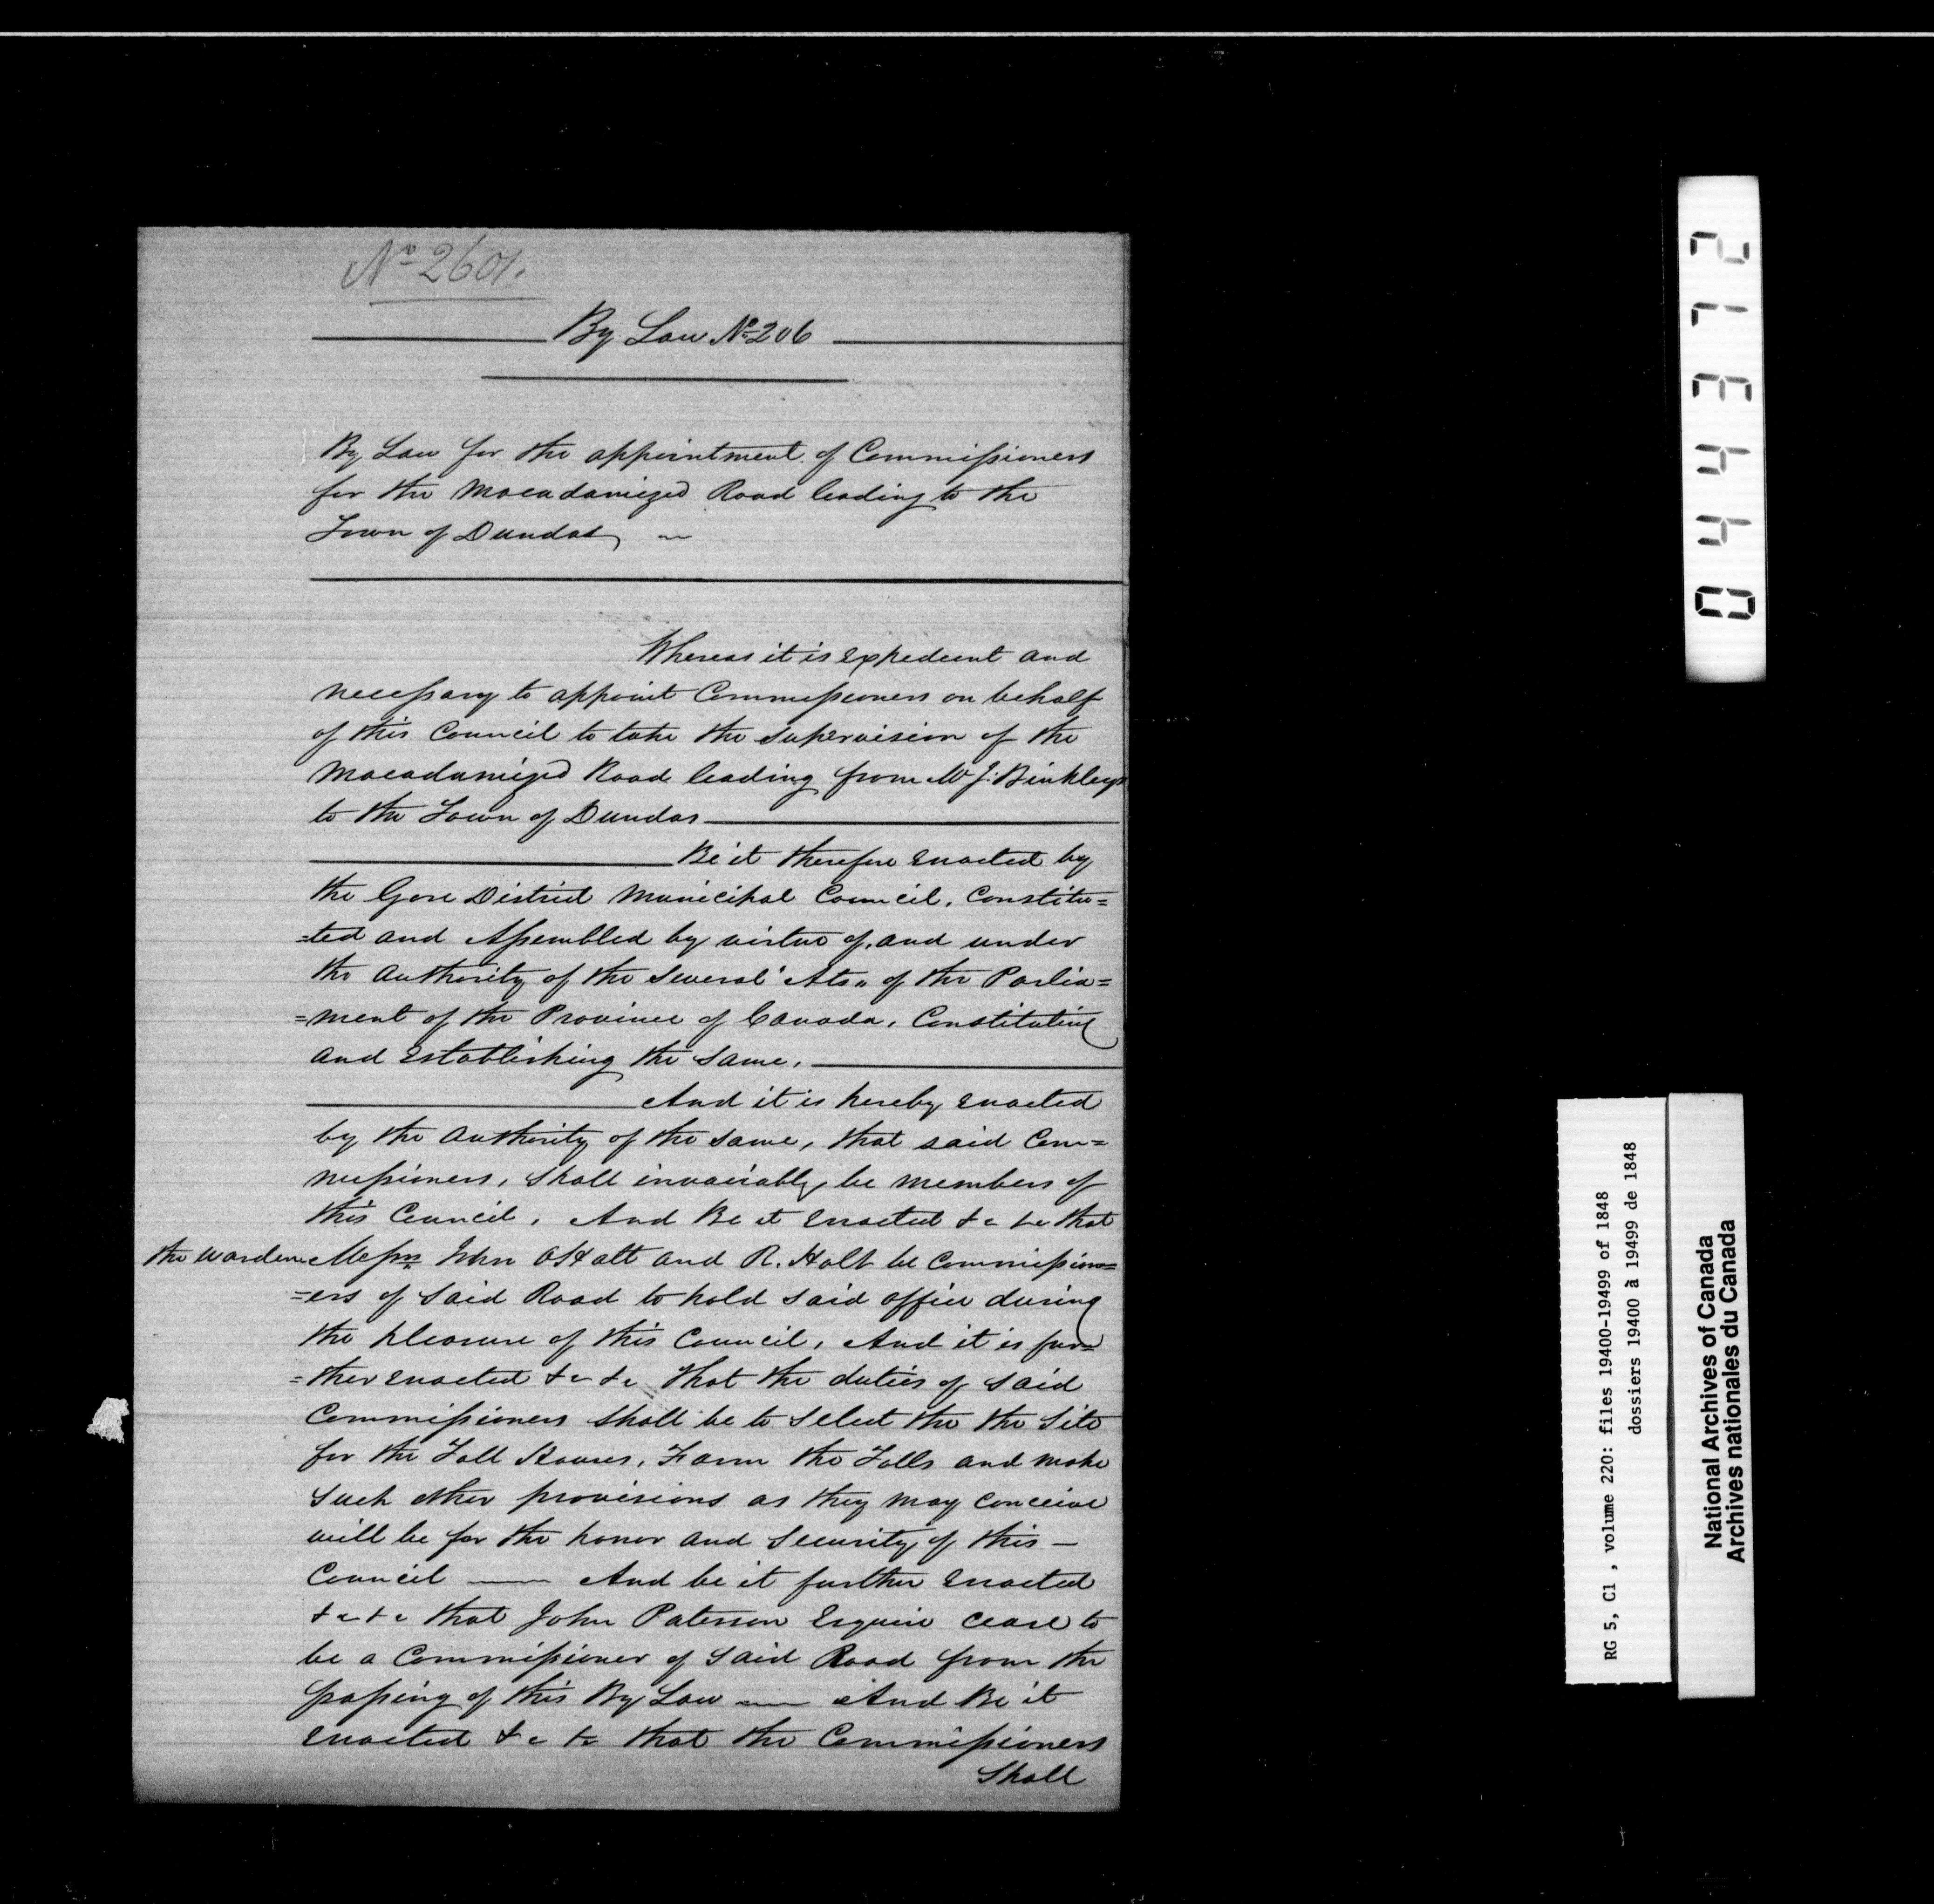 No 2601.
By Law No 206
By Law for the appointment of Commissioners
for the Macadamized Road leading to the
Town of Dundas
Whereas it is expedient and
necessary to appoint Commissioners on behalf
of this Council to take the supervision of the
Macadamized Road leading from W J. Binkleys
to the Town of Dundas
Be it therefore enacted by
the Gore District Municipal Council, Constitu=
=ted and Assembled by virtue of, and under
the Authority of the several "Ats" of the Parlia=
=ment of the Province of Canada, Constituting
and establishing the same,
And it is hereby enacted
by the Authority of the same, that said Com=
missioners, shall invariably be members of
this Council, And Be it enacted &c &c that
the warden Messrs John O Hatt and R. Holt be Commission=
=ers of said Road to hold said office during
the pleasure of this Council, And it is fur=
=ther enacted &c &c that the duties of said
Commissioners shall be to select the the Site
for the Toll Houses, Farm the Tolls and make
such other provisions as they may conceive
will be for the honor and Security of this —
Council —— And be it further enacted
&c &c that John Paterson Esquire cease to
be a Commissioner of said Road from the
passing of this By Law —— And Be it
enacted &c &c that the Commissioners
Shall
044372
RG 5, C1 , volume 220: files 19400-19499 of 1848
dossiers 19400 à 19499 de 1848
National Archives of Canada
Archives nationales du Canada